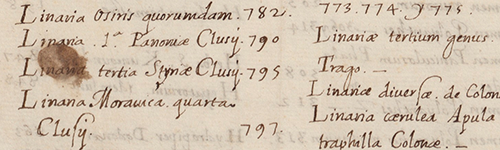 Linaria Osiris quorumdam. 782.
Linaria .1a Panoniæ Clusij. 790
Linaria tertia Styriæ Clusij. 795
Linaria Morauica quarta
Clusij. 797.
773. 774. y 775.
Linariæ tertium genus.
Trago. —
Linariæ diversæ. de Colon
Linaria cærulea Apula
traphilla Colonæ. —